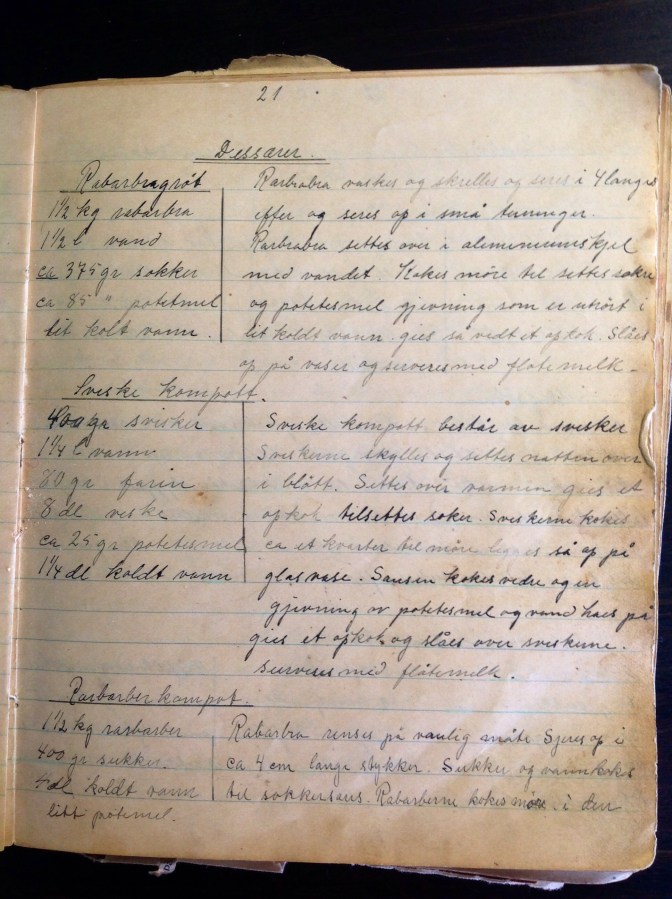 21
Dessærer.
Rabarbragrøt
1½ kg rabarbra
1½ l vand
ca 375 gr sokker
ca 85 " potetmel
lit kolt vann.
Rarbrabra vaskes og skrelles og seres i 4 langs
effer og seres op i små terninger.
Rarbrabra settes over i alemineumskjel
med vandet. Kokes möre til settes sokre
og potetesmel gjevning som er utrört i
lit koldt vann. gies så vedt et opkok. Slåes
op på vaser og serveres med flöte melk.
Sveske kompott.
400 gr svisker
1¼ l vann
80 gr farin
8 dl veske
ca 25 gr potetesmel
1¼ dl koldt vann
Sveske kompott består av svesker
Sveskerne skylles og settes natten over
i blött. Settes over varmen gies et
opkok tilsettes soker. Sveskerne kokes
ca et kvarter til möre ligges så op på
glas vase. Sausen kokes vedre og en
gjevning ov potetesmel og vand haes på
gies et opkok og slåes over sveskerne.
serveres med flötemelk.
Rarbarber kompot.
1½ kg rarbarber
400 gr sukker.
4 dl koldt vann
litt potemel.
Rabarbra renses på vanlig måte Sjeres op i
ca 4 cm lange stykker. Sukker og vann kokes
til sokkersaus. Rabarberne kokes möre i den